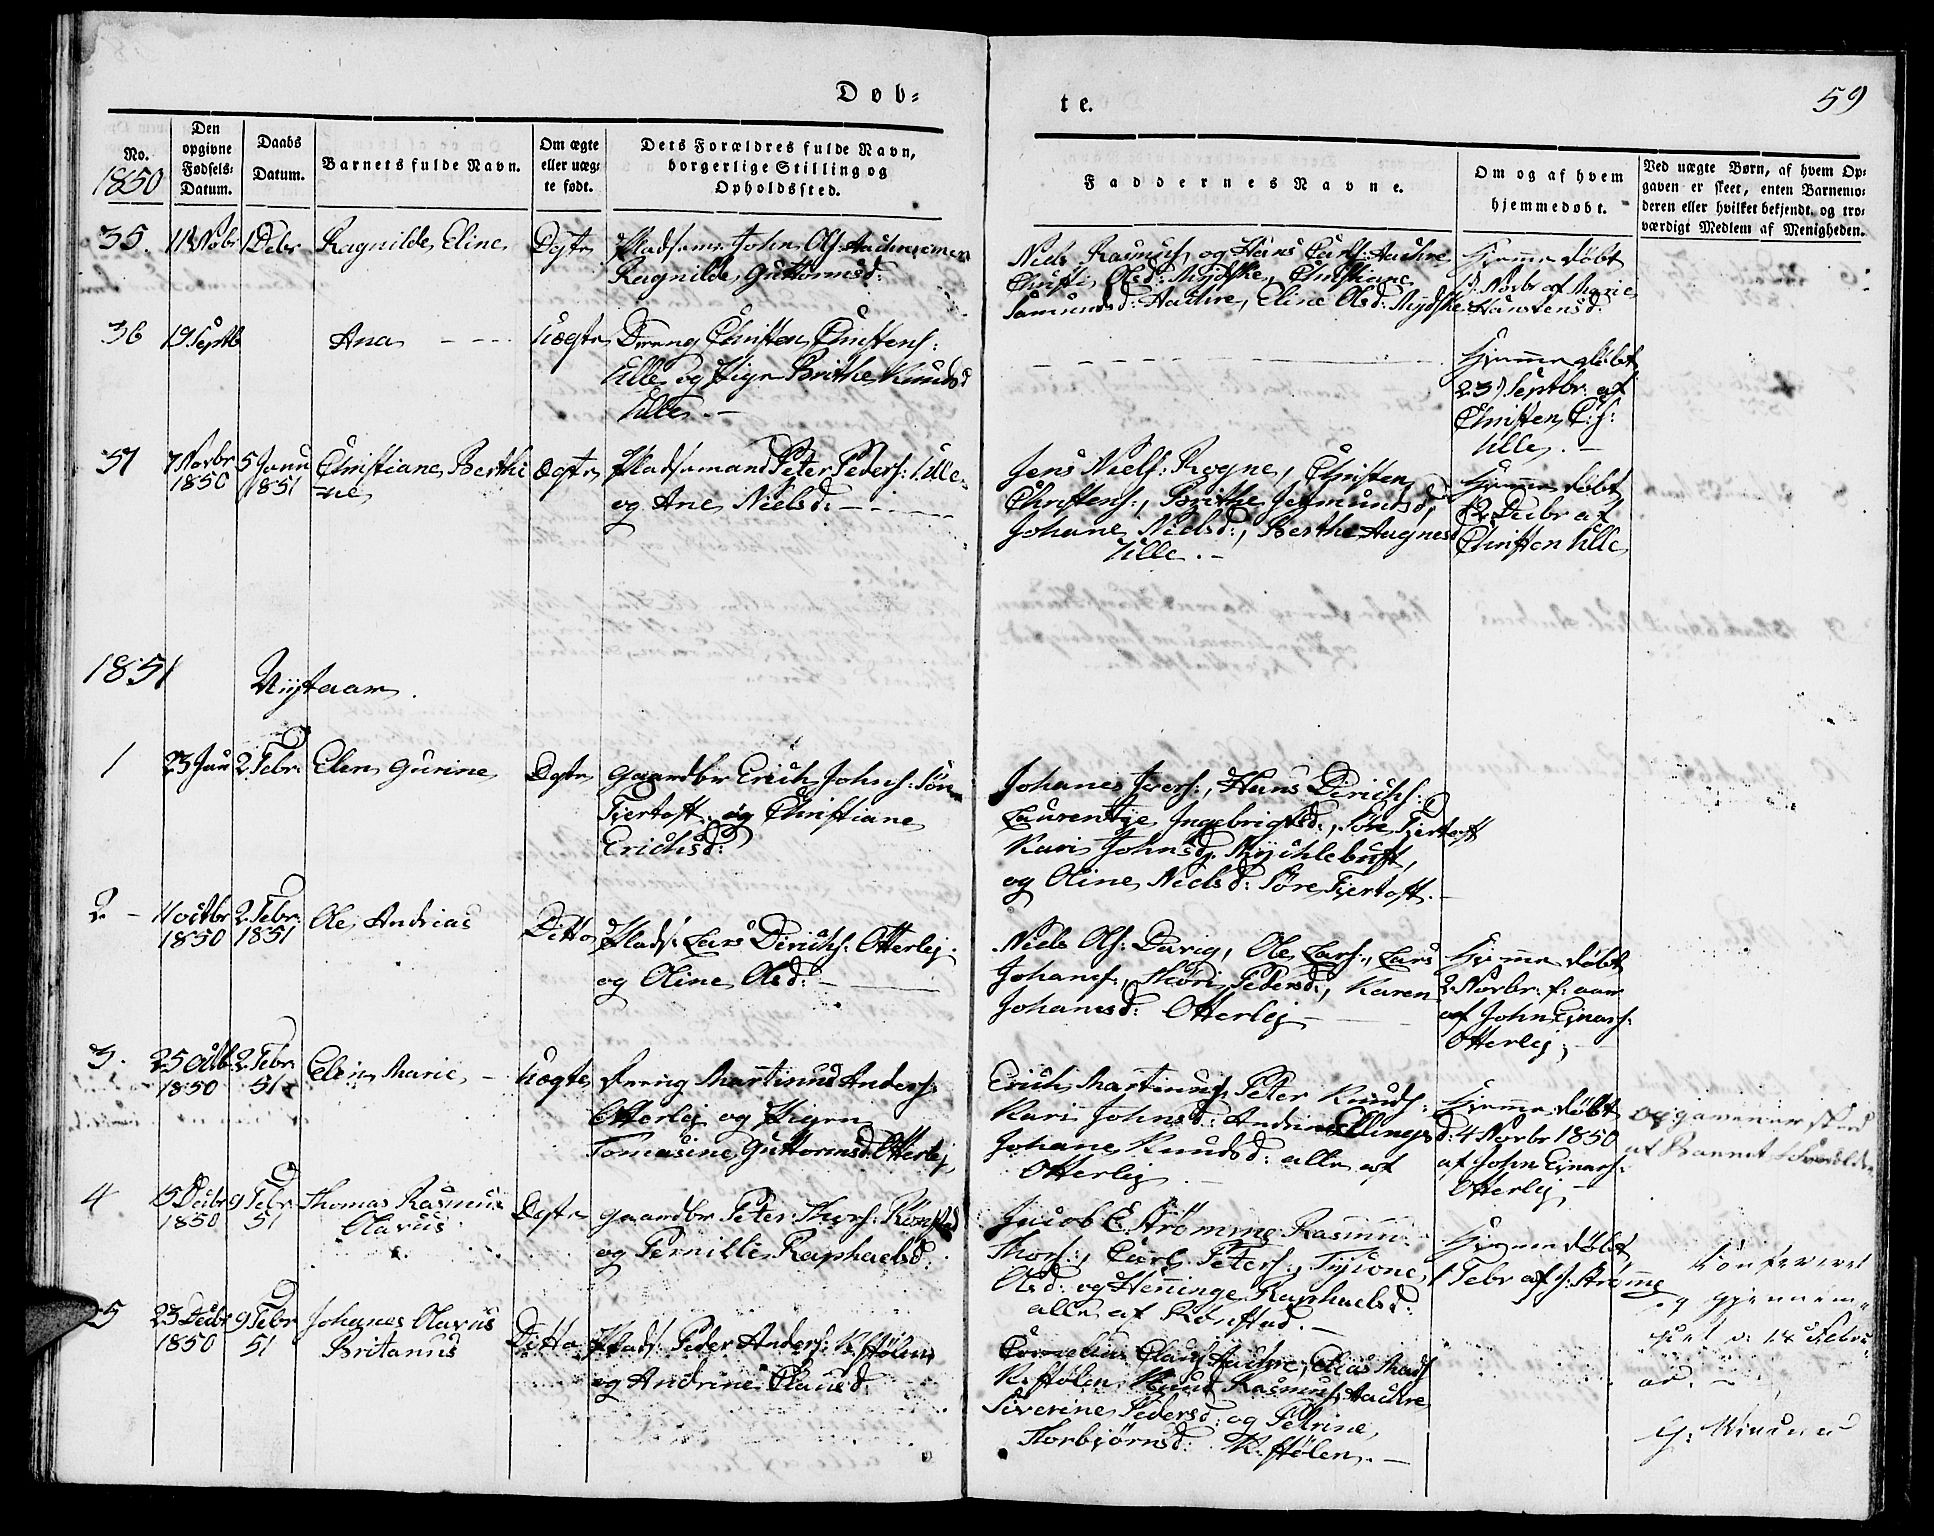 Døb-
te.
59
No.
1850
Den
opgivne
Fødsels-
Datum.
Daabs
Datum.
Barnets fulde Navn.
Om ægte
eller uæg-
te født.
Dets Forældres fulde Navn,
borgerlige Stilling og
Opholdssted.
Faddernes Navne.
Om og af hvem
hjemmedøbt.
Ved uægte Børn, af hvem Op-
gaven er skeet, enten Barnemo-
deren eller hvilket bekjendt og tro-
værdigt Medlem af Menigheden.
35. 11 Nobr 1 Debr Ragnilde Eline
Pladsm. John Ols.
Ragnilde Guttormsd:
Niels Rasmus, og Hans Carls. Aachre
Christi Olsd:
Samundsd: Aachre, Eline Olsd:
Hjemmedøbt
Novbr af Marie
Hanstensd:
36 19 Septb Ana
Uægte
Dreng Christen Christens:
Ulle og Pige Brithe Knudsd
Ulle. -
Hjemmedøbt
23) Septbr: af
Christen C:s:
Ulle. -
7 Novbr
1850
5 Janu
1851
Christiane Berthi
=ne
Ægte
Pladsmand Peter Peders: Ulle
og Ane Nielsd: -
Jens Niels: Rogne, Christen
Christens:, Brithe
Johane Nielsd:, Berthe
Ulle. -
Hjemmedøbt
12 Decbr af
Christen Ulle
1851
Nytaar.
1 23 Jan 2 Febr. Elen Gurine
Gaardbr Erich Johns: Søre
Fjertoft og Christiane
Erichsd:
Johanes Ivers:, Hans Dirichs:
Laurentze Ingebrigtsd:, Søre Fjertoft
Kari Johnsd. Mychlebust,
og Oline Nielsd: Søre Fjertoft. -
2 - 11 octbr
1850
2 Febr.
1851
Ole Andrias
Ditto
Plads: Lars Dirichs: Otterlej
og Oline Olsd: -
Niels Ols: Ole Lars:, Lars
Johans:, Pedersd:, Karen
Johanesd: Otterlej -
Hjemmedøbt
2 Novbr: f: aar
af John Ejnars:
Otterlej, -
3. 25 Octb
1850
2 Febr
51
Elen Marie -
Uægte
Dreng Martinus Anders:
Otterlej og Pigen
Tomasine Guttormsd: Otterlej
Erich Martinus, Peter Knuds:
Kari Johnsd: Andrine Ellingsd:
Johane Knudsd: alle af
Otterlej -
Hjemmedøbt
4 Novbr 1850
af John Ejnars:
Otterlej -
Opgaven er skeed
af Barnet
4 5 Decbr
1850
9 Febr
51
Thomas Rasmus
Olavus
Gaardbr Peter Thors: Rønstad
og Pernille Raphaelsd:
Jacob E. Strømme Rasmus
Thors:, Carl Peters:,
Olsd: og Henninge Raphaelsd:
alle af Rønstad -
Hjemmedøbt
1 Febr af J: Strømme
Confereret
og gjennem-
seet d: 18 Febru-
ar. -
5 23 Decbr
1850
9 Febr
51
Johanes Olavus
Britanus
Ditto
Plads: Peder Anders: K.stølen
og Andrine Clausd:
Cornelius Claus Aachre, Elias Mads
K.stølen, Knud Rasmus, Aachre
Siverine Pedersd: og Petrine
Thorbjørnsd: K.stølen. -